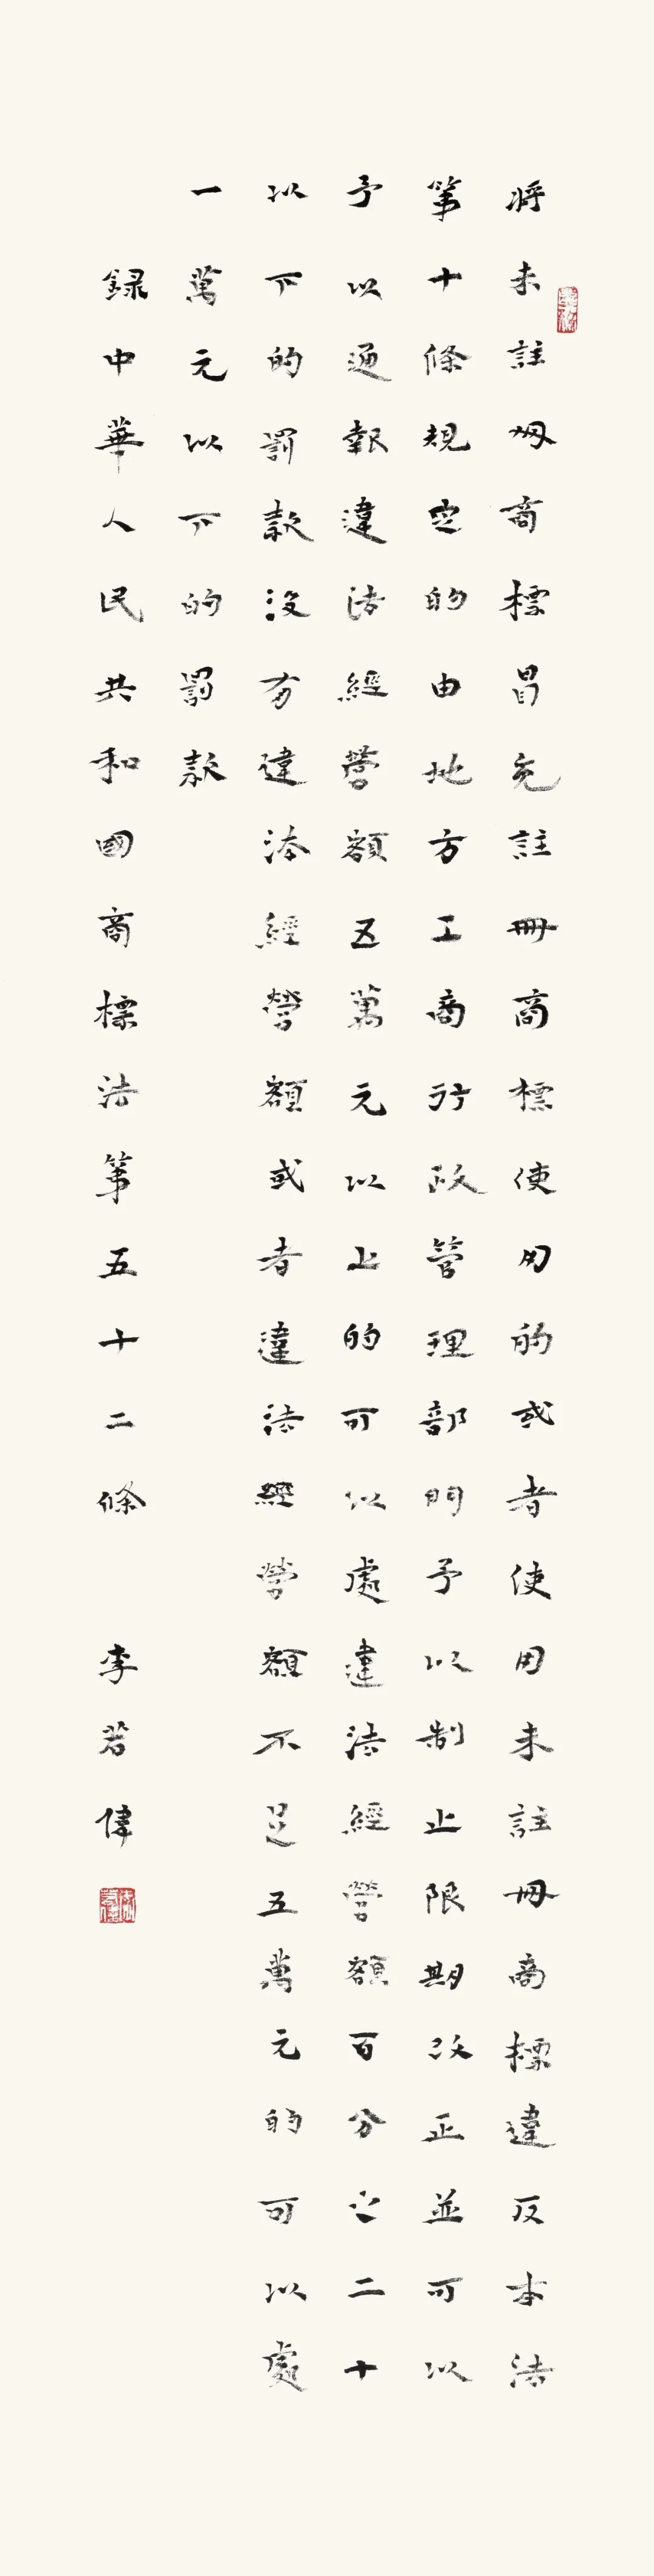 將未註册商標冒充註冊商標使用的或者使用未註冊商標違反本法
第十條規定的由地方工商行政管理部門予以制止限期改正並可以
予以通報違法經營額五萬元以上的可以處違法經營額百分之二十
以下的罰款沒有違法經營額或者違法經營額不足五萬元的可以處
一萬元以下的罰款
録中華人民共和國商標法第五十二條 李若偉